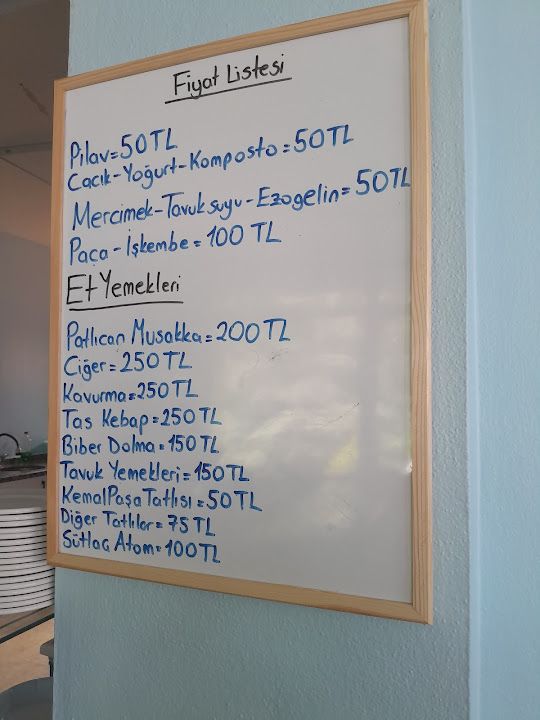 Fiyat Listesi
Pilav=50TL
Cacık-Yoğurt-Komposto=50TL
Mercimek-Tavuksuyu-Ezogelin=50TL
Paça-İşkembe=100 TL
Et Yemekleri
Patlıcan Musakka=200TL
Ciğer=250TL
Kavurma=250TL
Tas Kebap=250TL
Biber Dolma=150TL
Tavuk Yemekleri=150TL
KemalPaşa Tatlısı=50TL
Diğer Tatlılar=75TL
Sütlaç Atom=100TL